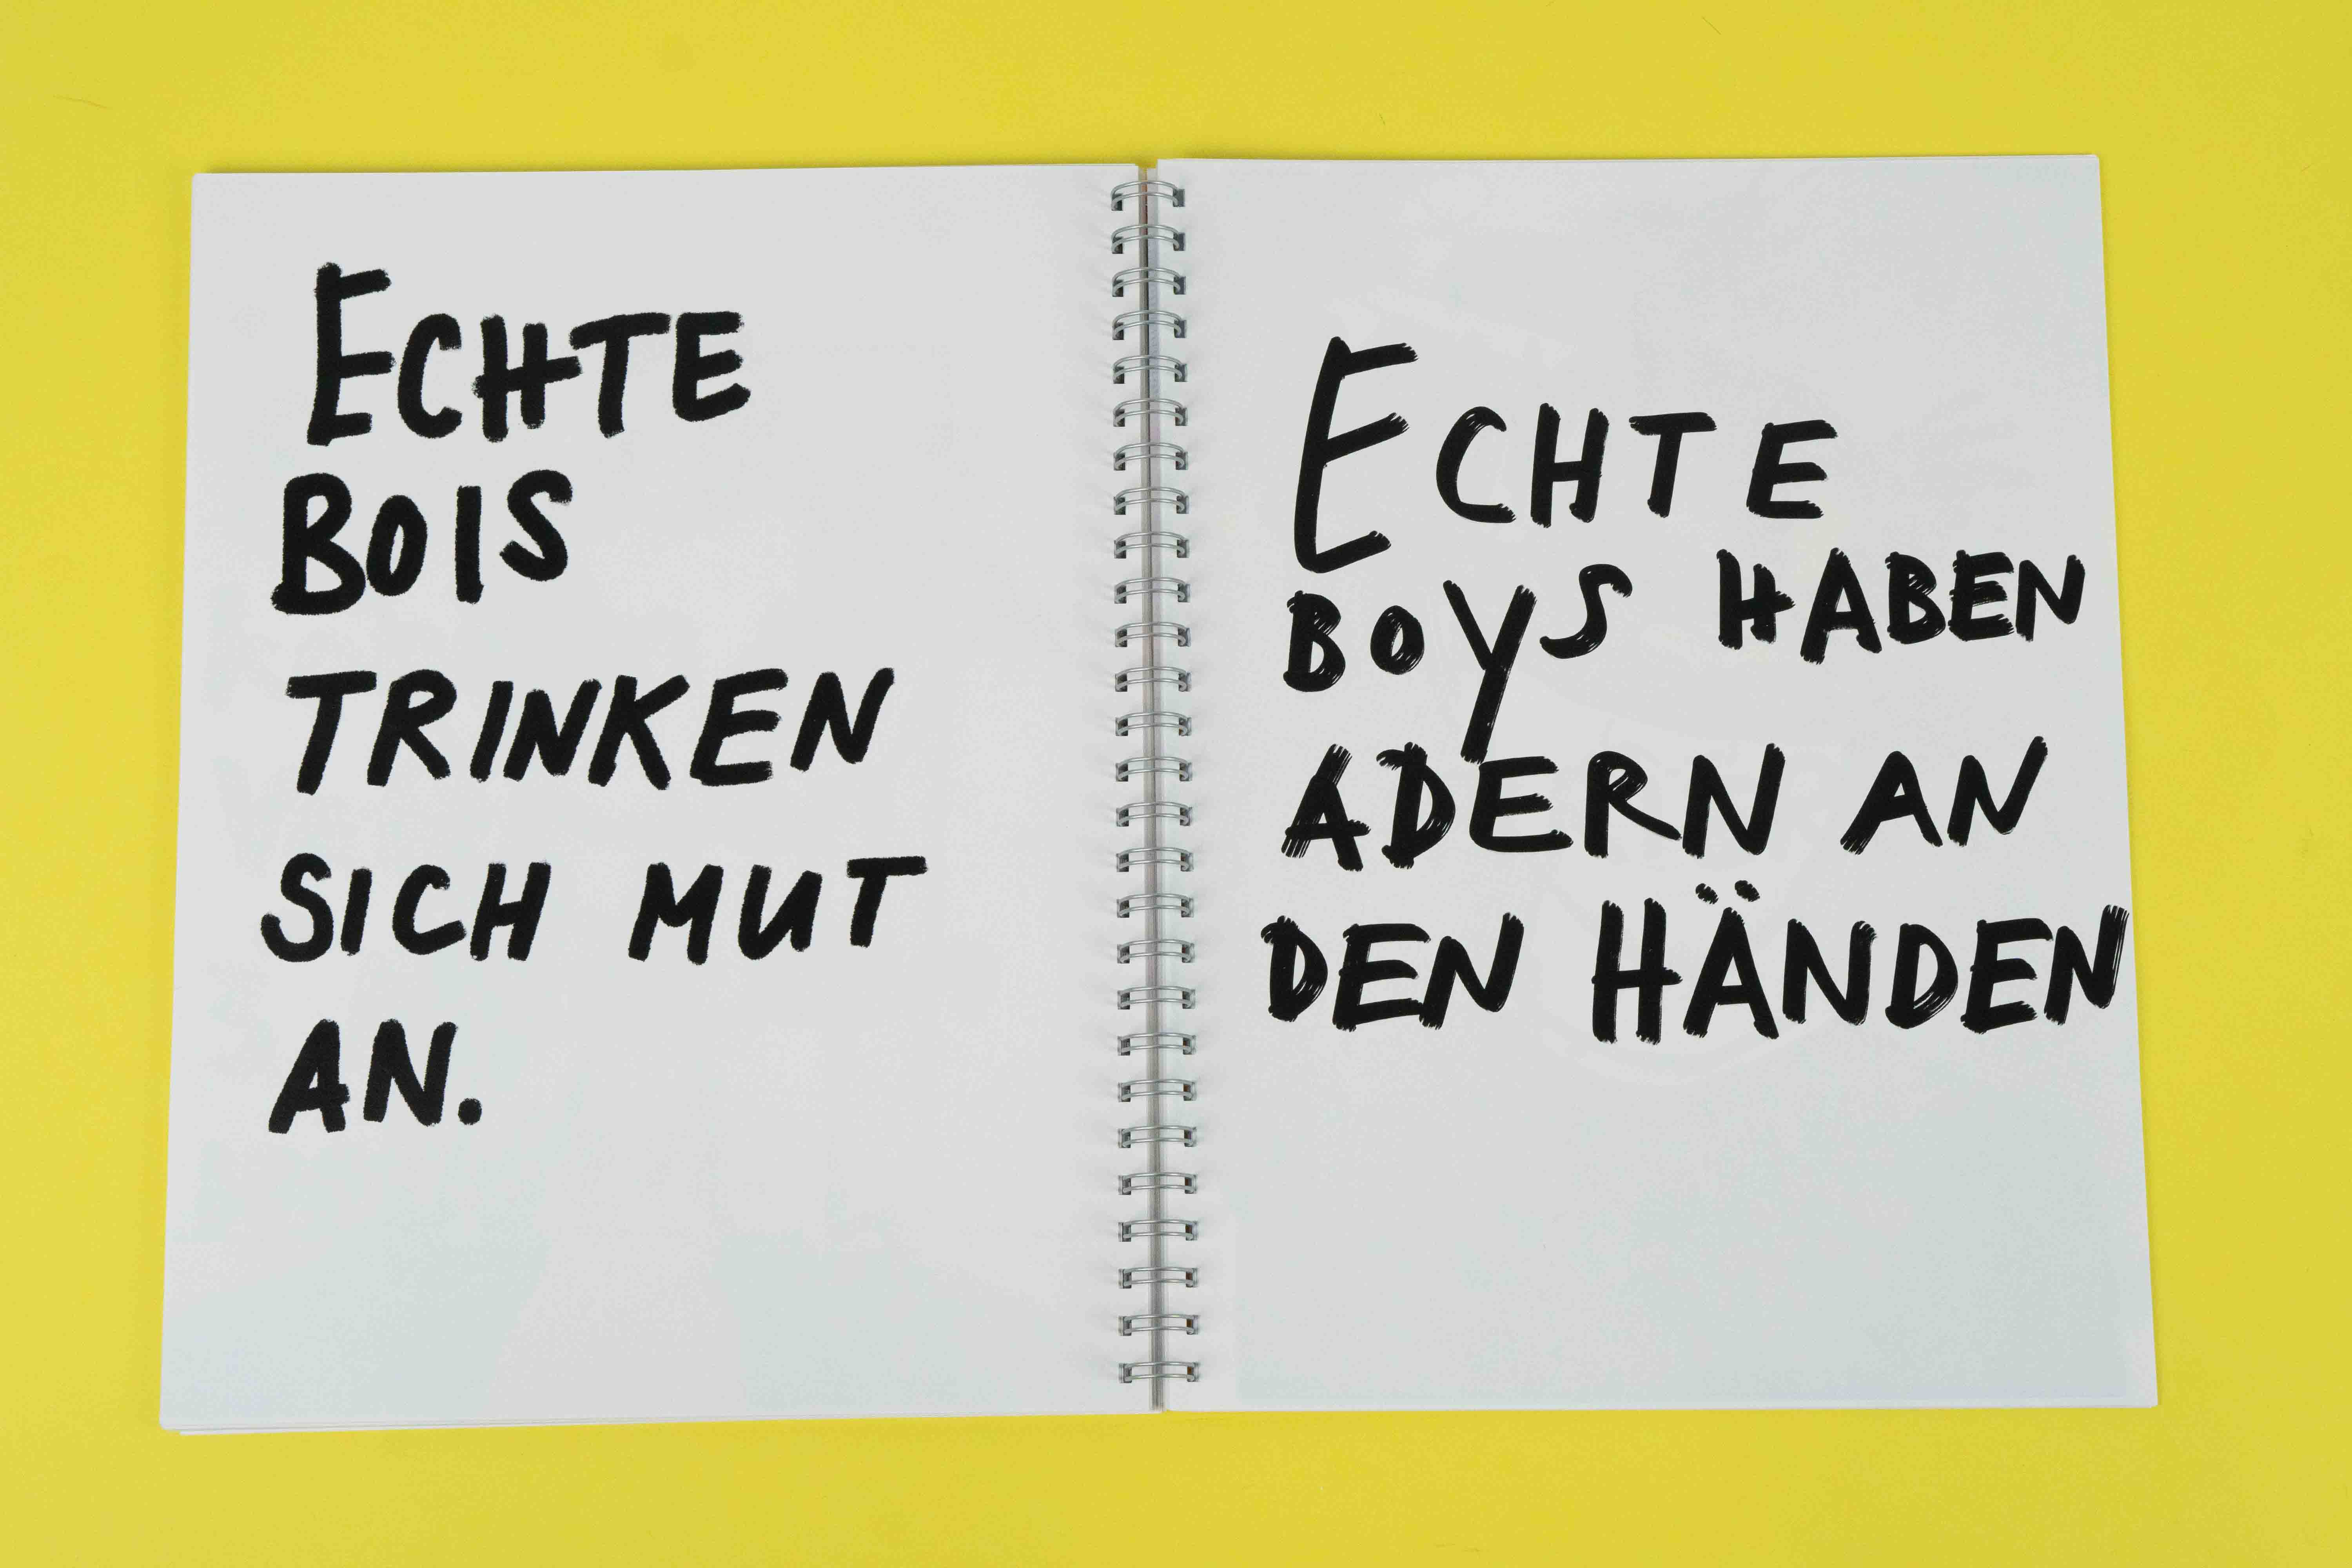 ECHTE
BOIS
TRINKEN
SICH MUT
AN.
ECHTE
BOYS HABEN
ADERN AN
DEN HÄNDEN